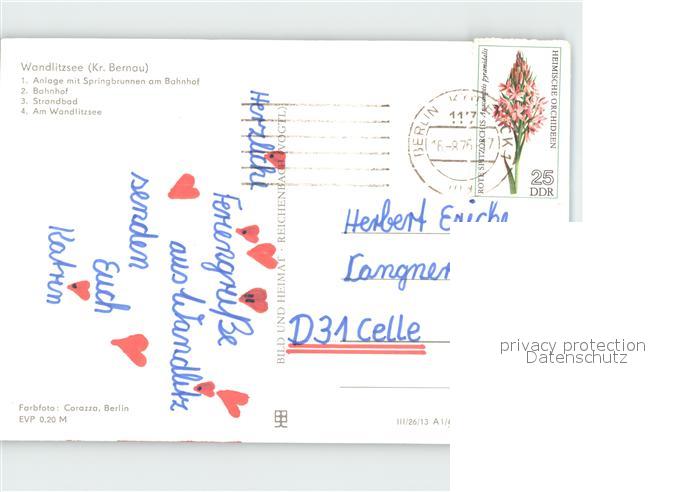 Wandlitzsee (Kr. Bernau)
1. Anlage mit Springbrunnen am Bahnhof
2. Bahnhof
3. Strandbad
4. Am Wandlitzsee
Herzliche
Feriengrüße
aus Wandlitz
senden
Euch
Katrin
Farbfoto: Corazza, Berlin
EVP 0,20 M
BILD UND HEIMAT · REICHENBACH (VOGTL)
III/26/13 A1/
BERLIN
HEIMISCHE ORCHIDEEN
ROTE SPITZORCHIS Anacamptis pyramidalis
25
DDR
Herbert
Langner
D31 Celle
privacy protection
Datenschutz